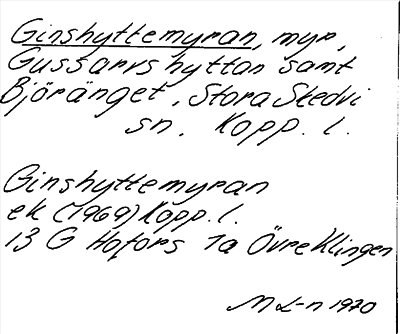 Ginshyttemyran, myr,
Gussarvshyttan samt
Björänget, Stora Skedvi
sn, Kopp. l.
Ginshyttemyran
ek (1969) Kopp. l.
13 G Hofors 1a Övre Klingen
M L-n 1970